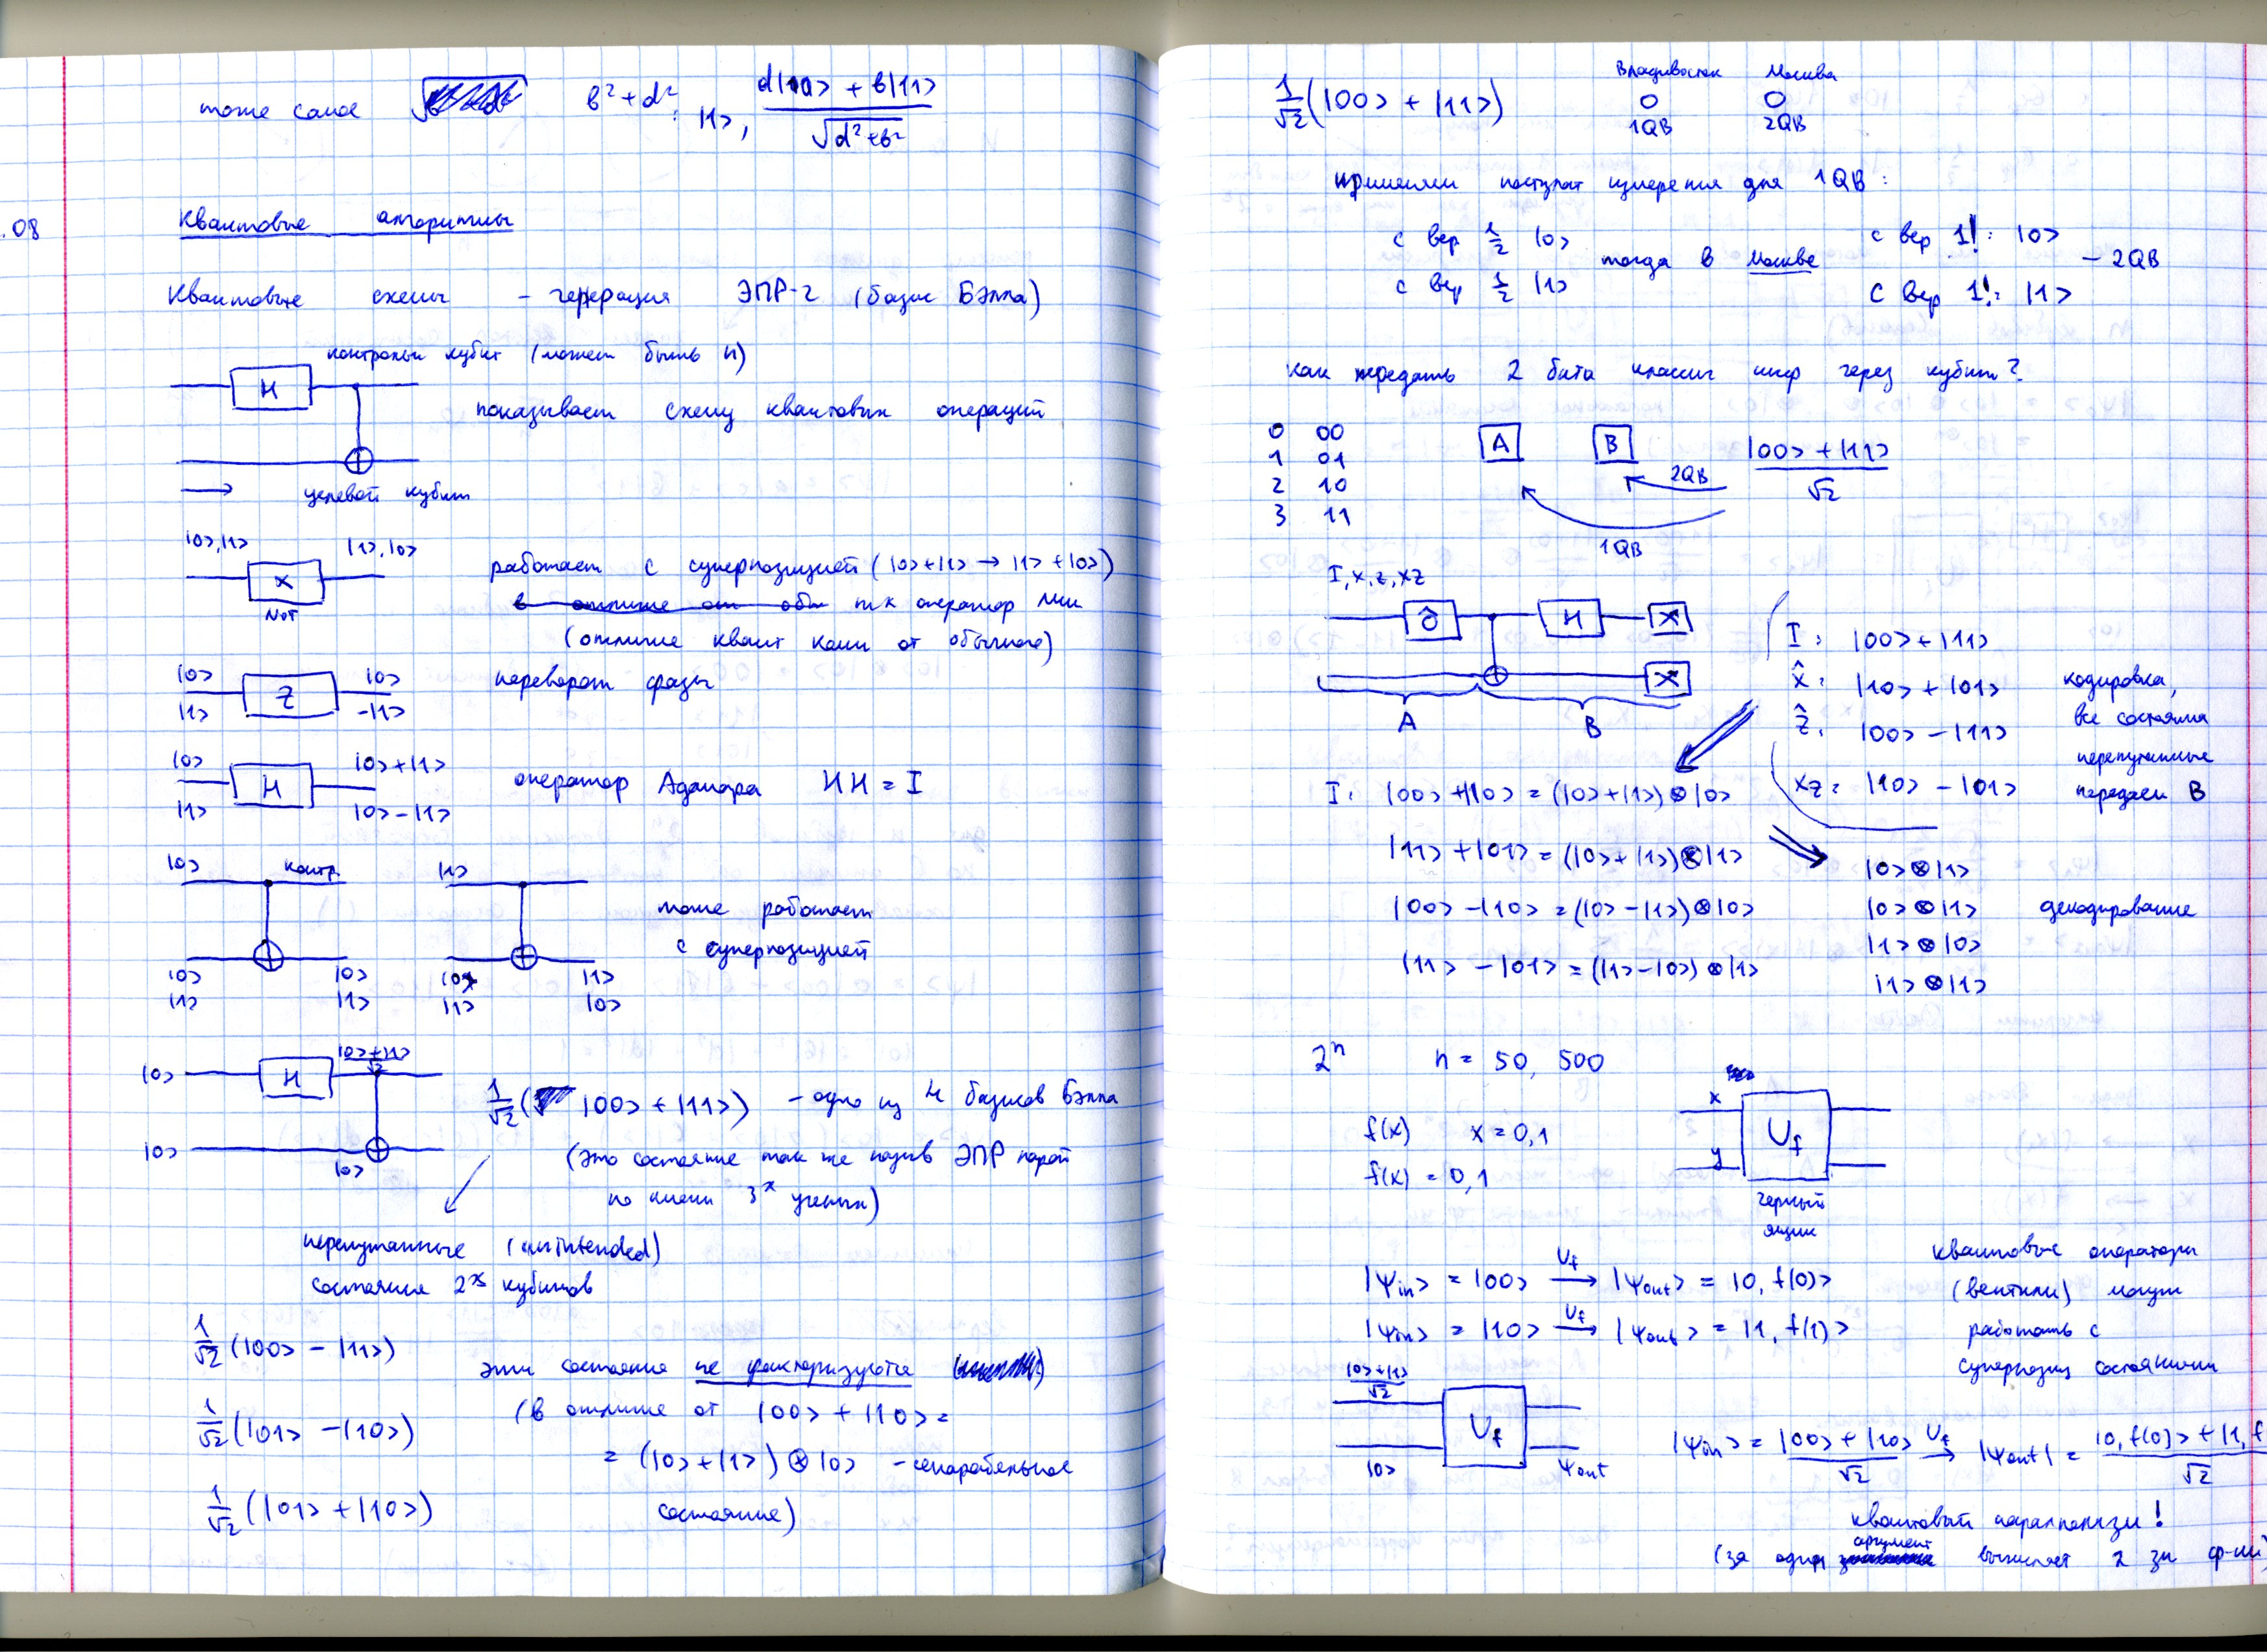 тоже самое b²+d² : |1>, d|10> + b|11> / √d²+b²
.08
Квантовые алгоритмы
Квантовые схемы - генерация ЭПР-2 (базис Бэлла)
контрольн кубит (может быть n)
H
показывает схему квантовых операций
целевой кубит
|0>,|1> |1>,|0>
X
NOT
работает с суперпозицией (|0>+|1> → |1>+|0>)
в отличие от обы т к оператор лин
(отличие квант комп от обычного)
|0> |0>
Z
|1> -|1>
переворот фазы
|0> |0>+|1>
H
|1> |0>-|1>
оператор Адамара HH = I
|0> контр. |1>
тоже работает
с суперпозицией
|0> |0> |0> |1>
|1> |1> |1> |0>
|0> H |0>+|1> / √2
1/√2 ( |00> + |11>) - одно из 4 базисов Бэлла
|0> |0>
(это состояние так же назыв ЭПР парой
по имени 3х ученых)
перепутанные (unintended)
состояния 2х кубитов
1/√2 (|00> - |11>)
эти состояние не факторизуются
1/√2 (|01> - |10>)
(в отличие от |00> + |10> =
= (|0>+|1>) ⊗ |0> - сепарабельное
состояние)
1/√2 (|01> + |10>)
1/√2 (|00> + |11>)
Владивосток Москва
0 0
1QB 2QB
применим постулат измерения для 1QB :
с вер 1/2 |0> с вер 1! : |0>
тогда в Москве - 2QB
с вер 1/2 |1> с вер 1! : |1>
как передать 2 бита классич инф через кубит?
0 00
1 01
2 10
3 11
A B |00> + |11> / √2
2QB
1QB
I, X, Z, XZ
H X
X
A B
I: |00> + |11>
X̂: |10> + |01>
Ẑ: |00> - |11>
XZ: |10> - |01>
кодировка,
все состояния
перепутанные
передаем B
I: |00> + |10> = (|0>+|1>) ⊗ |0>
|11> + |01> = (|0>+|1>) ⊗ |1>
|00> - |10> = (|0>-|1>) ⊗ |0>
|11> - |01> = (|1>-|0>) ⊗ |1>
|0> ⊗ |1>
|0> ⊗ |1>
|1> ⊗ |0>
|1> ⊗ |1>
декодирование
2ⁿ n = 50, 500
f(x) x = 0,1
f(x) = 0,1
x
y
U_f
черный
ящик
|Ψin> = |00> U_f → |Ψout> = |0, f(0)>
|Ψin> = |10> U_f → |Ψout> = |1, f(1)>
квантовые операторы
(вентили) могут
работать с
суперпозиц состояниями
|0>+|1> / √2
U_f
|0> Ψout
|Ψin> = |00> + |10> / √2 U_f → |Ψout| = |0, f(0)> + |1, f / √2
квантовый параллелизм!
(за один аргумент вычисляет 2 зн ф-ии)